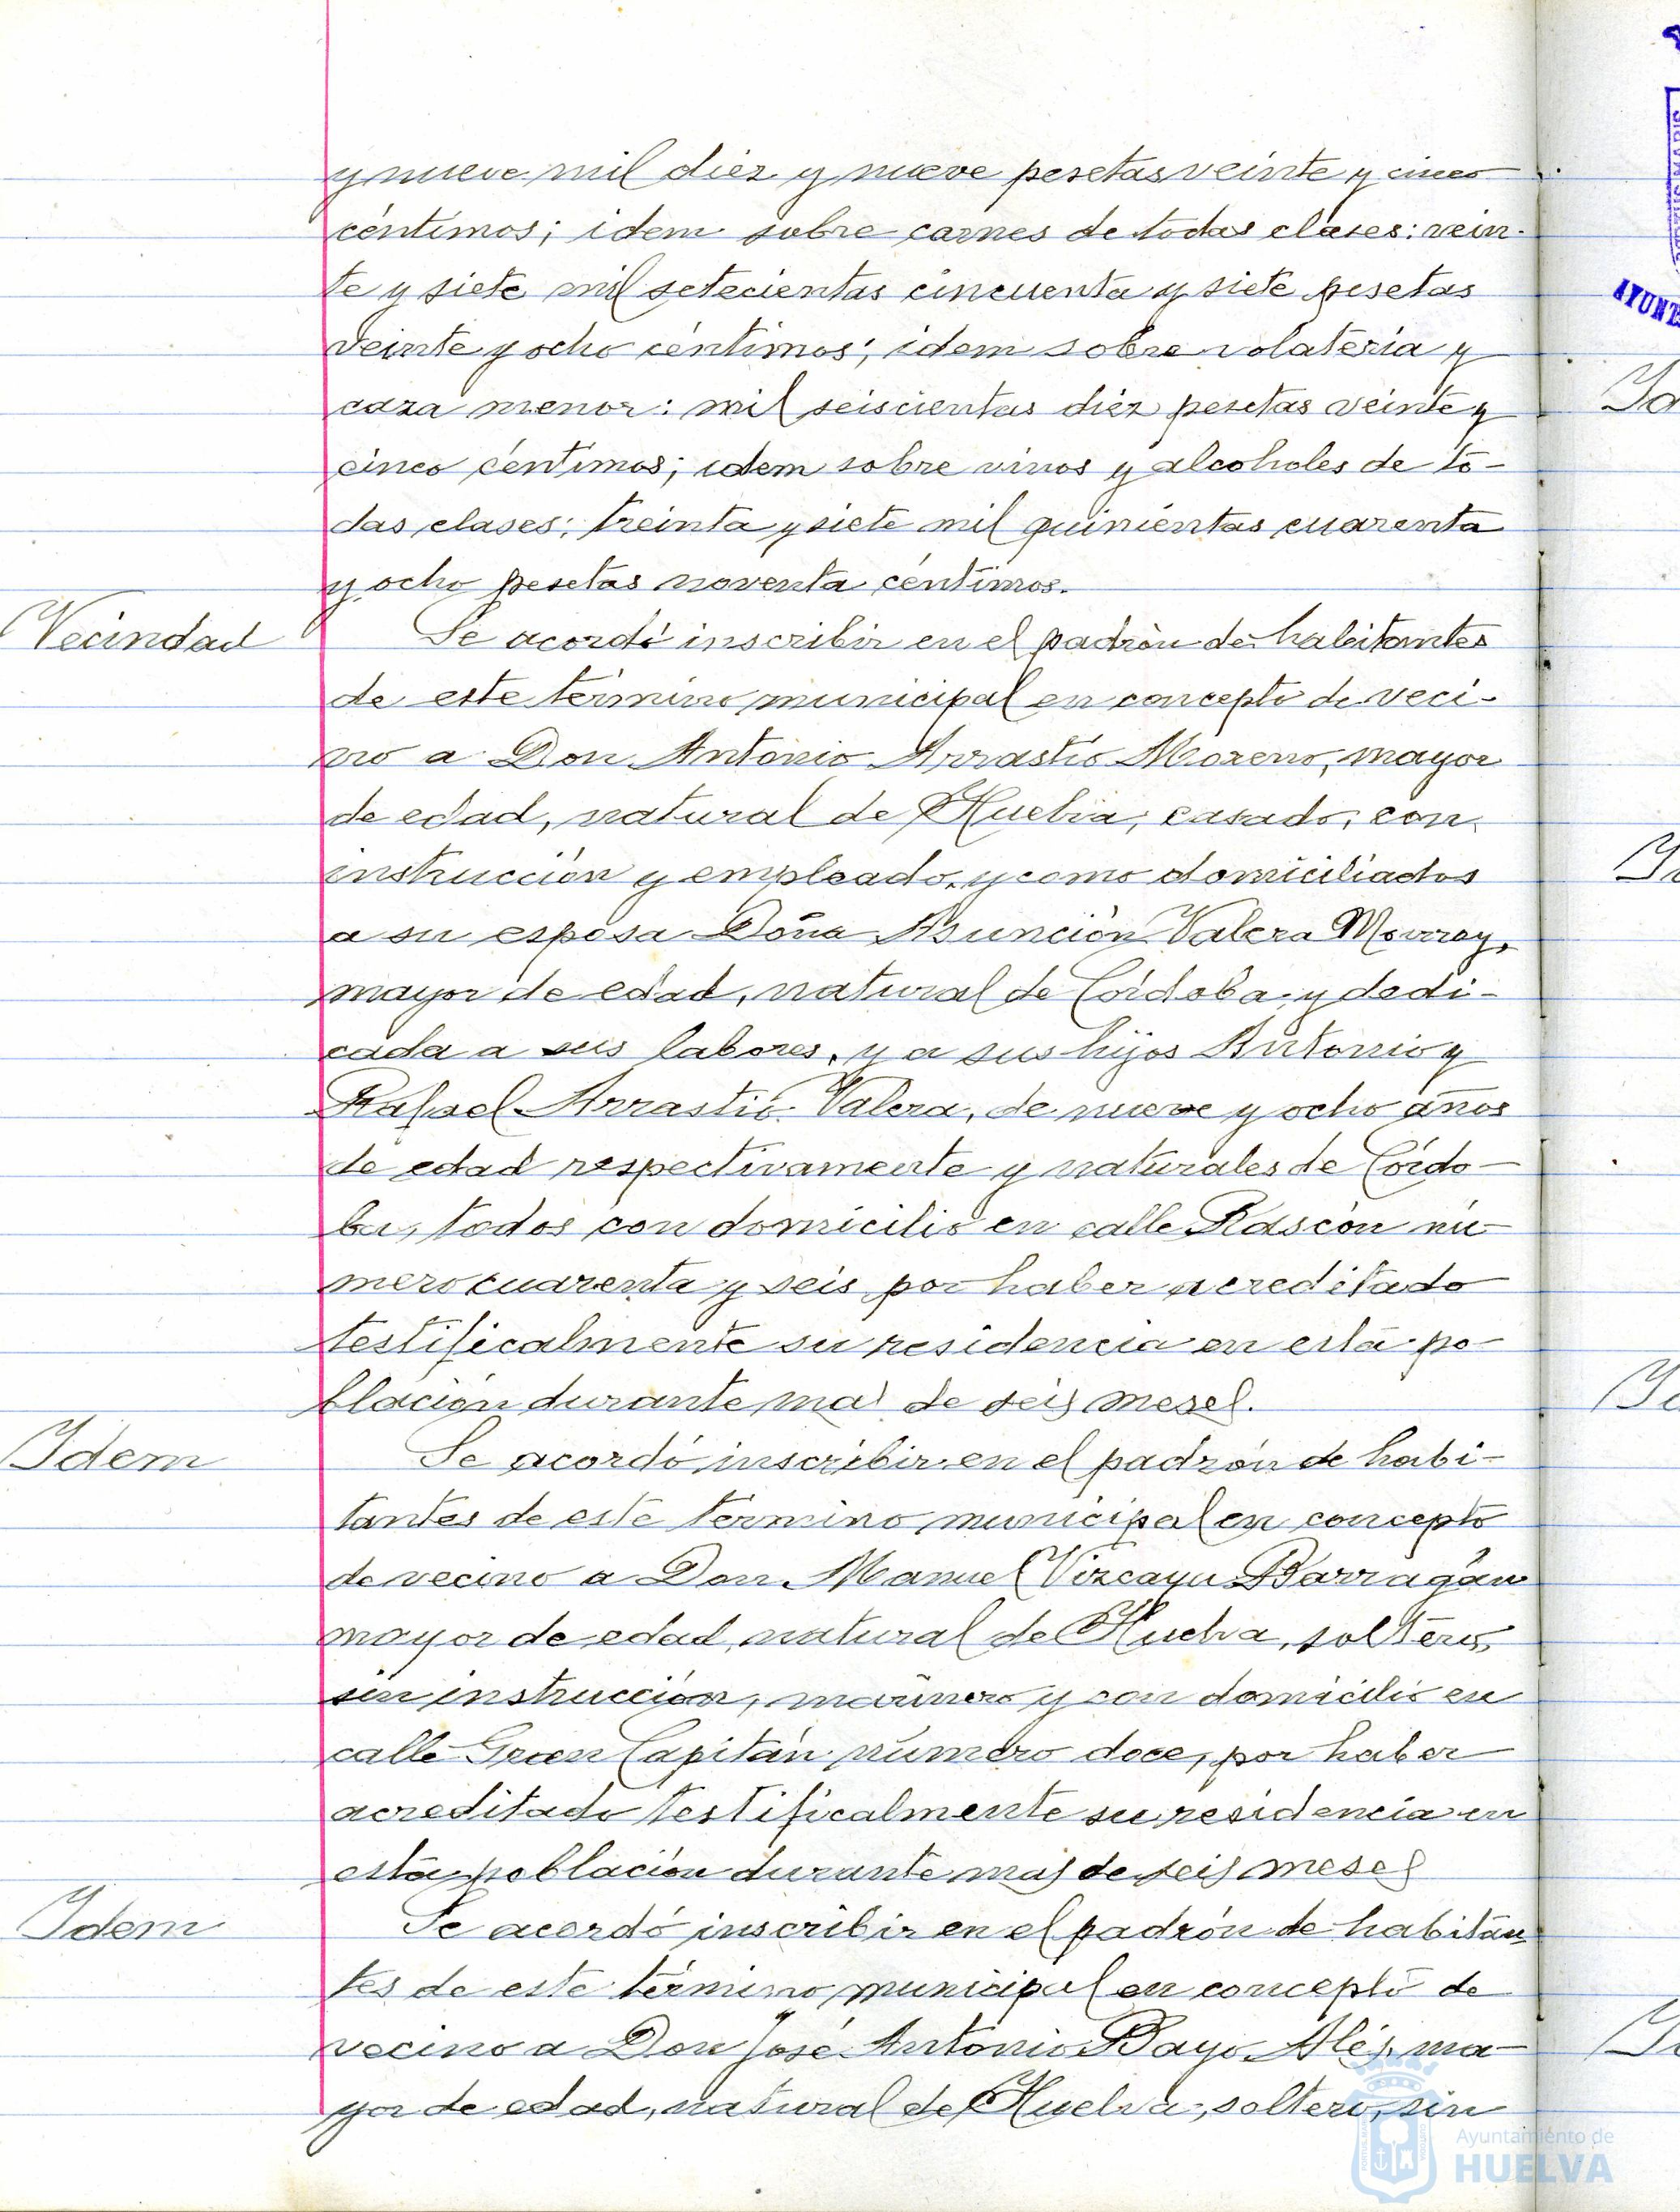 y nueve mil diez y nueve pesetas veinte y cinco
céntimos; idem sobre carnes de todas clases: vein-
te y siete mil setecientas cincuenta y siete pesetas
veinte y ocho céntimos; idem sobre volateria y
caza menor: mil seiscientas diez pesetas veinte y
cinco céntimos; idem sobre vinos y alcoholes de to-
das clases; treinta y siete mil quinientas cuarenta
y ocho pesetas noventa céntimos.
Vecindad
Se acordó inscribir en el padrón de habitantes
de este término municipal en concepto de veci-
no a Don Antonio Arrastio Moreno, mayor
de edad, natural de Huelva, casado, con
instrucción y empleado, y como domiciliados
a su esposa Doña Asunción Valera
mayor de edad, natural de Córdoba y dedi-
cada a sus labores, y a sus hijos Antonio y
Rafael Arrastio Valera, de nueve y ocho años
de edad respectivamente y naturales de Córdo-
ba, todos con domicilio en calle Rascón nú-
mero cuarenta y seis por haber acreditado
testificalmente su residencia en esta po-
blación durante mas de seis meses.
Idem
Se acordó inscribir en el padrón de habi-
tantes de este término municipal en concepto
de vecino a Don Manuel Vizcaya Barragán
mayor de edad, natural de Huelva, soltero,
sin instrucción, marinero y con domicilio en
calle Gran Capitán número doce, por haber
acreditado testificalmente su residencia en
esta población durante mas de seis meses
Idem
Se acordó inscribir en el padrón de habitan
tes de este término municipal en concepto de
vecino a Don José Antonio Bayo Alés, ma-
yor de edad, natural de Huelva, soltero, sin
Ayuntamiento de
HUELVA
AYUNT